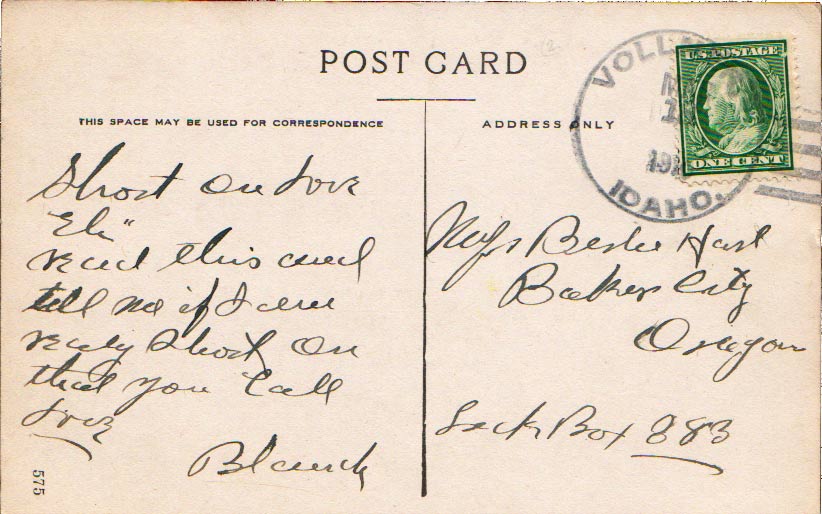 POST CARD
THIS SPACE MAY BE USED FOR CORRESPONDENCE
ADDRESS ONLY
VOLL
M
19
IDAHO.
U.S. POSTAGE
ONE CENT
Short on Love
"Eh"
read this and
tell me if I am
realy Short on
that you call
Love
Blanch
Miss Bessie Hart
Baker City
Oregon
Lock Box 383
575